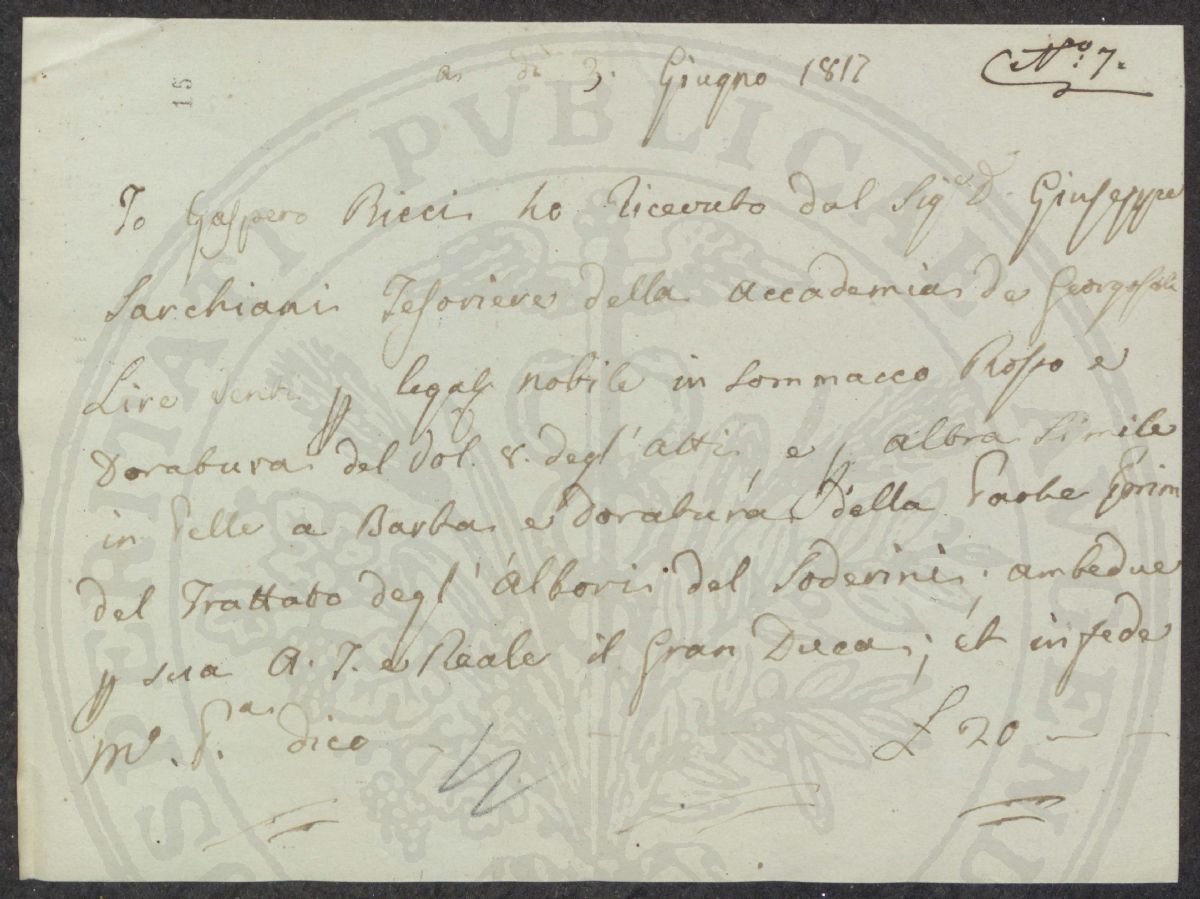 N.o 7.
a dì 3. Giugno 1817
15
Io Gaspero Ricci ho ricevuto dal Sig.e D. Giuseppe
Sarchiani Tesoriere della Accademia de Georgofili
Lire venti p legat. nobile in sommacco Rosso e
Doratura del Vol. 8. degl' atti, e p altra simile
in Pelle a Barba e Doratura della Parte Prim
del Trattato degl' Alberi del Soderini, ambedue
p sua A. I. e Reale il Gran Duca; et in fede
M.o P.a dico £ 20
PVBLICAE
PROSPERITATI